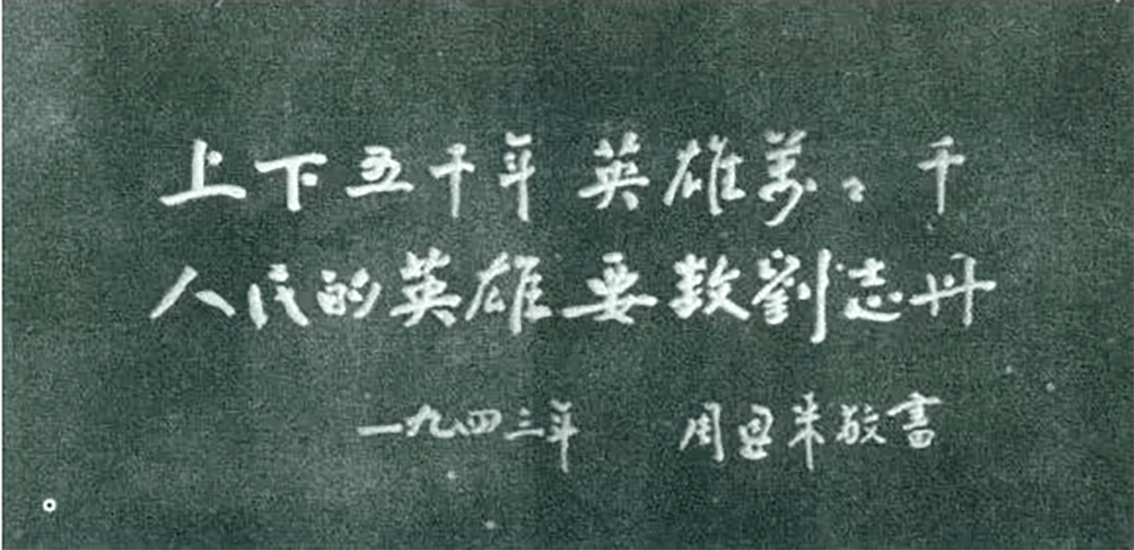 上下五千年 英雄萬々千
人民的英雄要数劉志丹
一九四三年 周恩来敬書